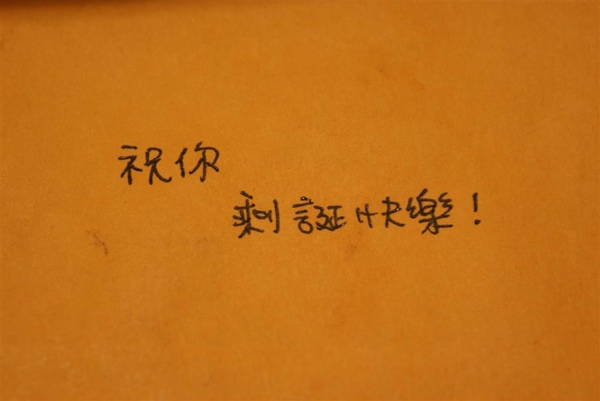 祝你
剩誕快樂！